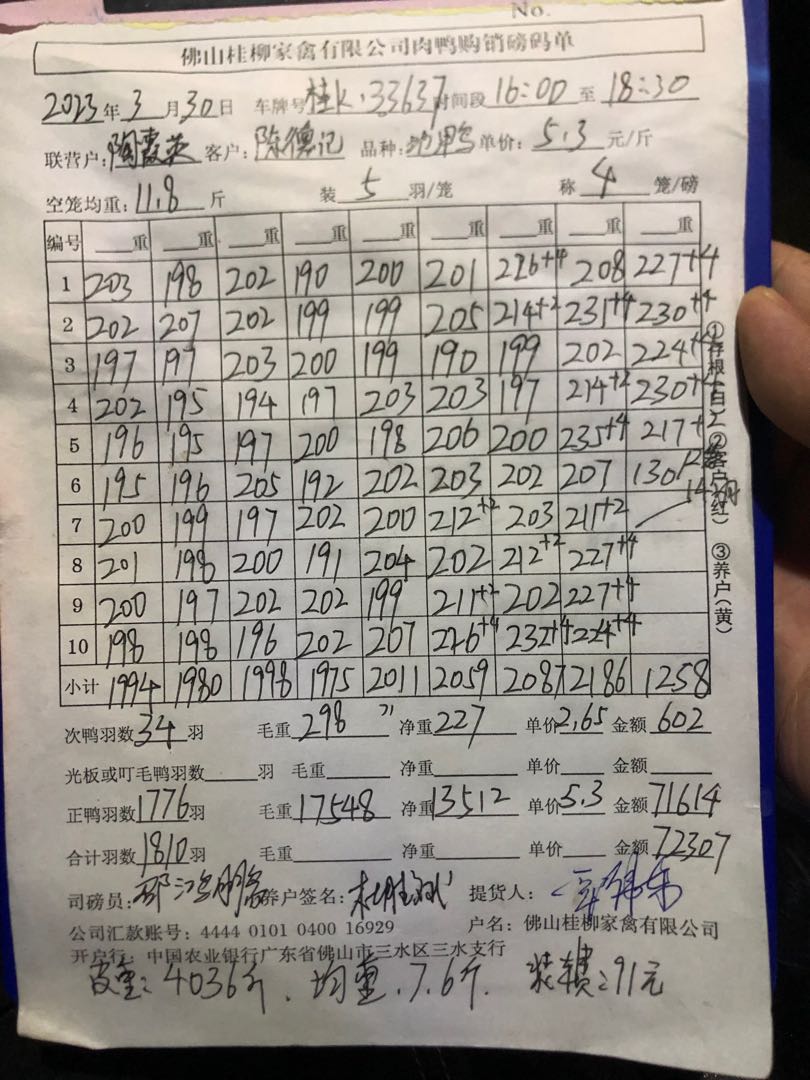 No.
佛山桂柳家禽有限公司肉鸭购销磅码单
2023年3月30日 车牌号桂K·33637时间段16:00至18:30
联营户:陶霞英 客户:陈德记 品种: 单价:5.3元/斤
空笼均重:11.8斤 装5羽/笼 称4笼/磅
编号 重 重 重 重 重 重 重 重 重
1 203 198 202 190 200 201 226+4 208 227+4
2 202 207 202 199 199 205 214+2 231+4 230+4
3 197 197 203 200 199 190 199 202 224+4
4 202 195 194 197 203 203 197 214+2 230+4
5 196 195 197 200 198 206 200 235+4 217+2
6 195 196 205 192 202 203 202 207 130
7 200 199 197 202 200 212+2 203 211+2
8 201 198 200 191 204 202 212+2 227+4
9 200 197 202 202 199 211+2 202 227+4
10 198 198 196 202 207 226+4 232+4 224+4
小计 1994 1980 1998 1975 2011 2059 2087 2186 1258
次鸭羽数34羽 毛重298 71 净重227 单价2.65 金额602
光板或叮毛鸭羽数 羽 毛重 净重 单价 金额
正鸭羽数1776羽 毛重17548 净重13512 单价5.3 金额71614
合计羽数1810羽 毛重 净重 单价 金额72307
司磅员: 养户签名: 提货人:
公司汇款账号: 4444 0101 0400 16929 户名: 佛山桂柳家禽有限公司
开户行: 中国农业银行广东省佛山市三水区三水支行
皮重:4036斤. 均重.7.6斤. 装 费:91元
①存根(白) ②客户(红) ③养户(黄)